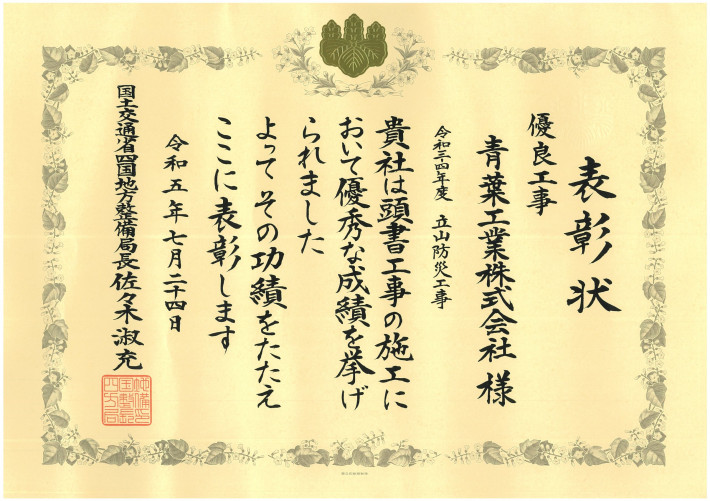 表彰状
優良工事
青葉工業株式会社 様
令和三・四年度 立山防災工事
貴社は頭書工事の施工に
おいて優秀な成績を挙げ
られました
よってその功績をたたえ
ここに表彰します
令和五年七月二十四日
国土交通省四国地方整備局長 佐々木淑充